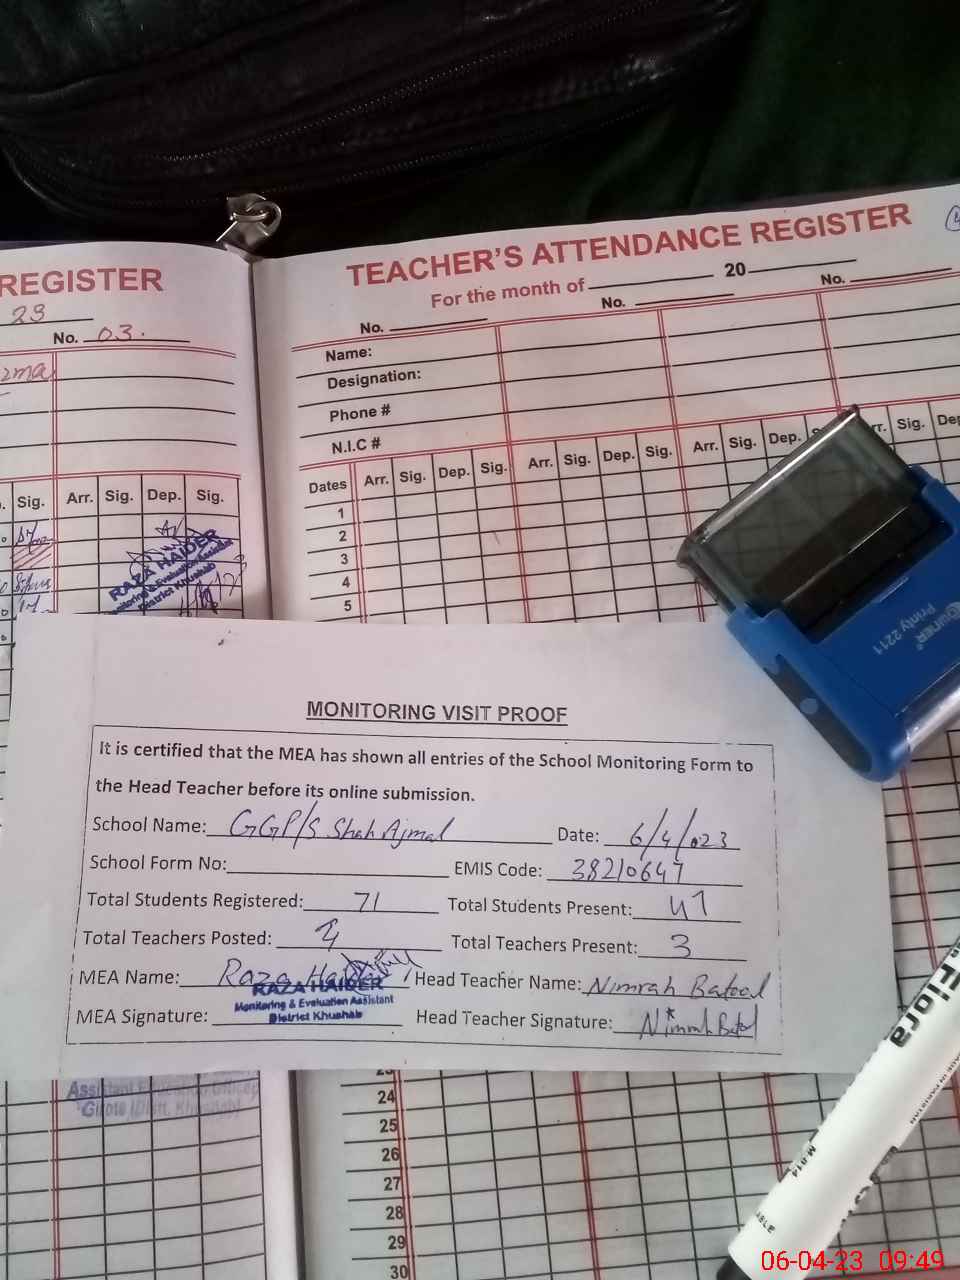 REGISTER
23
No. 03.
Sig. Arr. Sig. Dep. Sig.
RAZA HAIDER
Monitoring & Evaluation Assistant
District Khushab
TEACHER'S ATTENDANCE REGISTER
For the month of 20
No. No. No.
Name:
Designation:
Phone #
N.I.C #
Dates Arr. Sig. Dep. Sig. Arr. Sig. Dep. Sig. Arr. Sig. Dep. Sig.
1
2
3
4
5
Printy 2211
MONITORING VISIT PROOF
It is certified that the MEA has shown all entries of the School Monitoring Form to
the Head Teacher before its online submission.
School Name: GGP/S Shah Ajmal Date: 6/4/023
School Form No: EMIS Code: 38210647
Total Students Registered: 71 Total Students Present: 47
Total Teachers Posted: Total Teachers Present: 3
MEA Name: Raza Haider Head Teacher Name: Nimrah Batool
RAZA HAIDER
Monitoring & Evaluation Assistant
District Khushab
MEA Signature: Head Teacher Signature: Nimrah Batol
Assistant Education Officer
Girote (Distt. Khushab)
23
24
25
26
27
28
29
30
Flora
MADE IN PAKISTAN
M-914
06-04-23 09:49